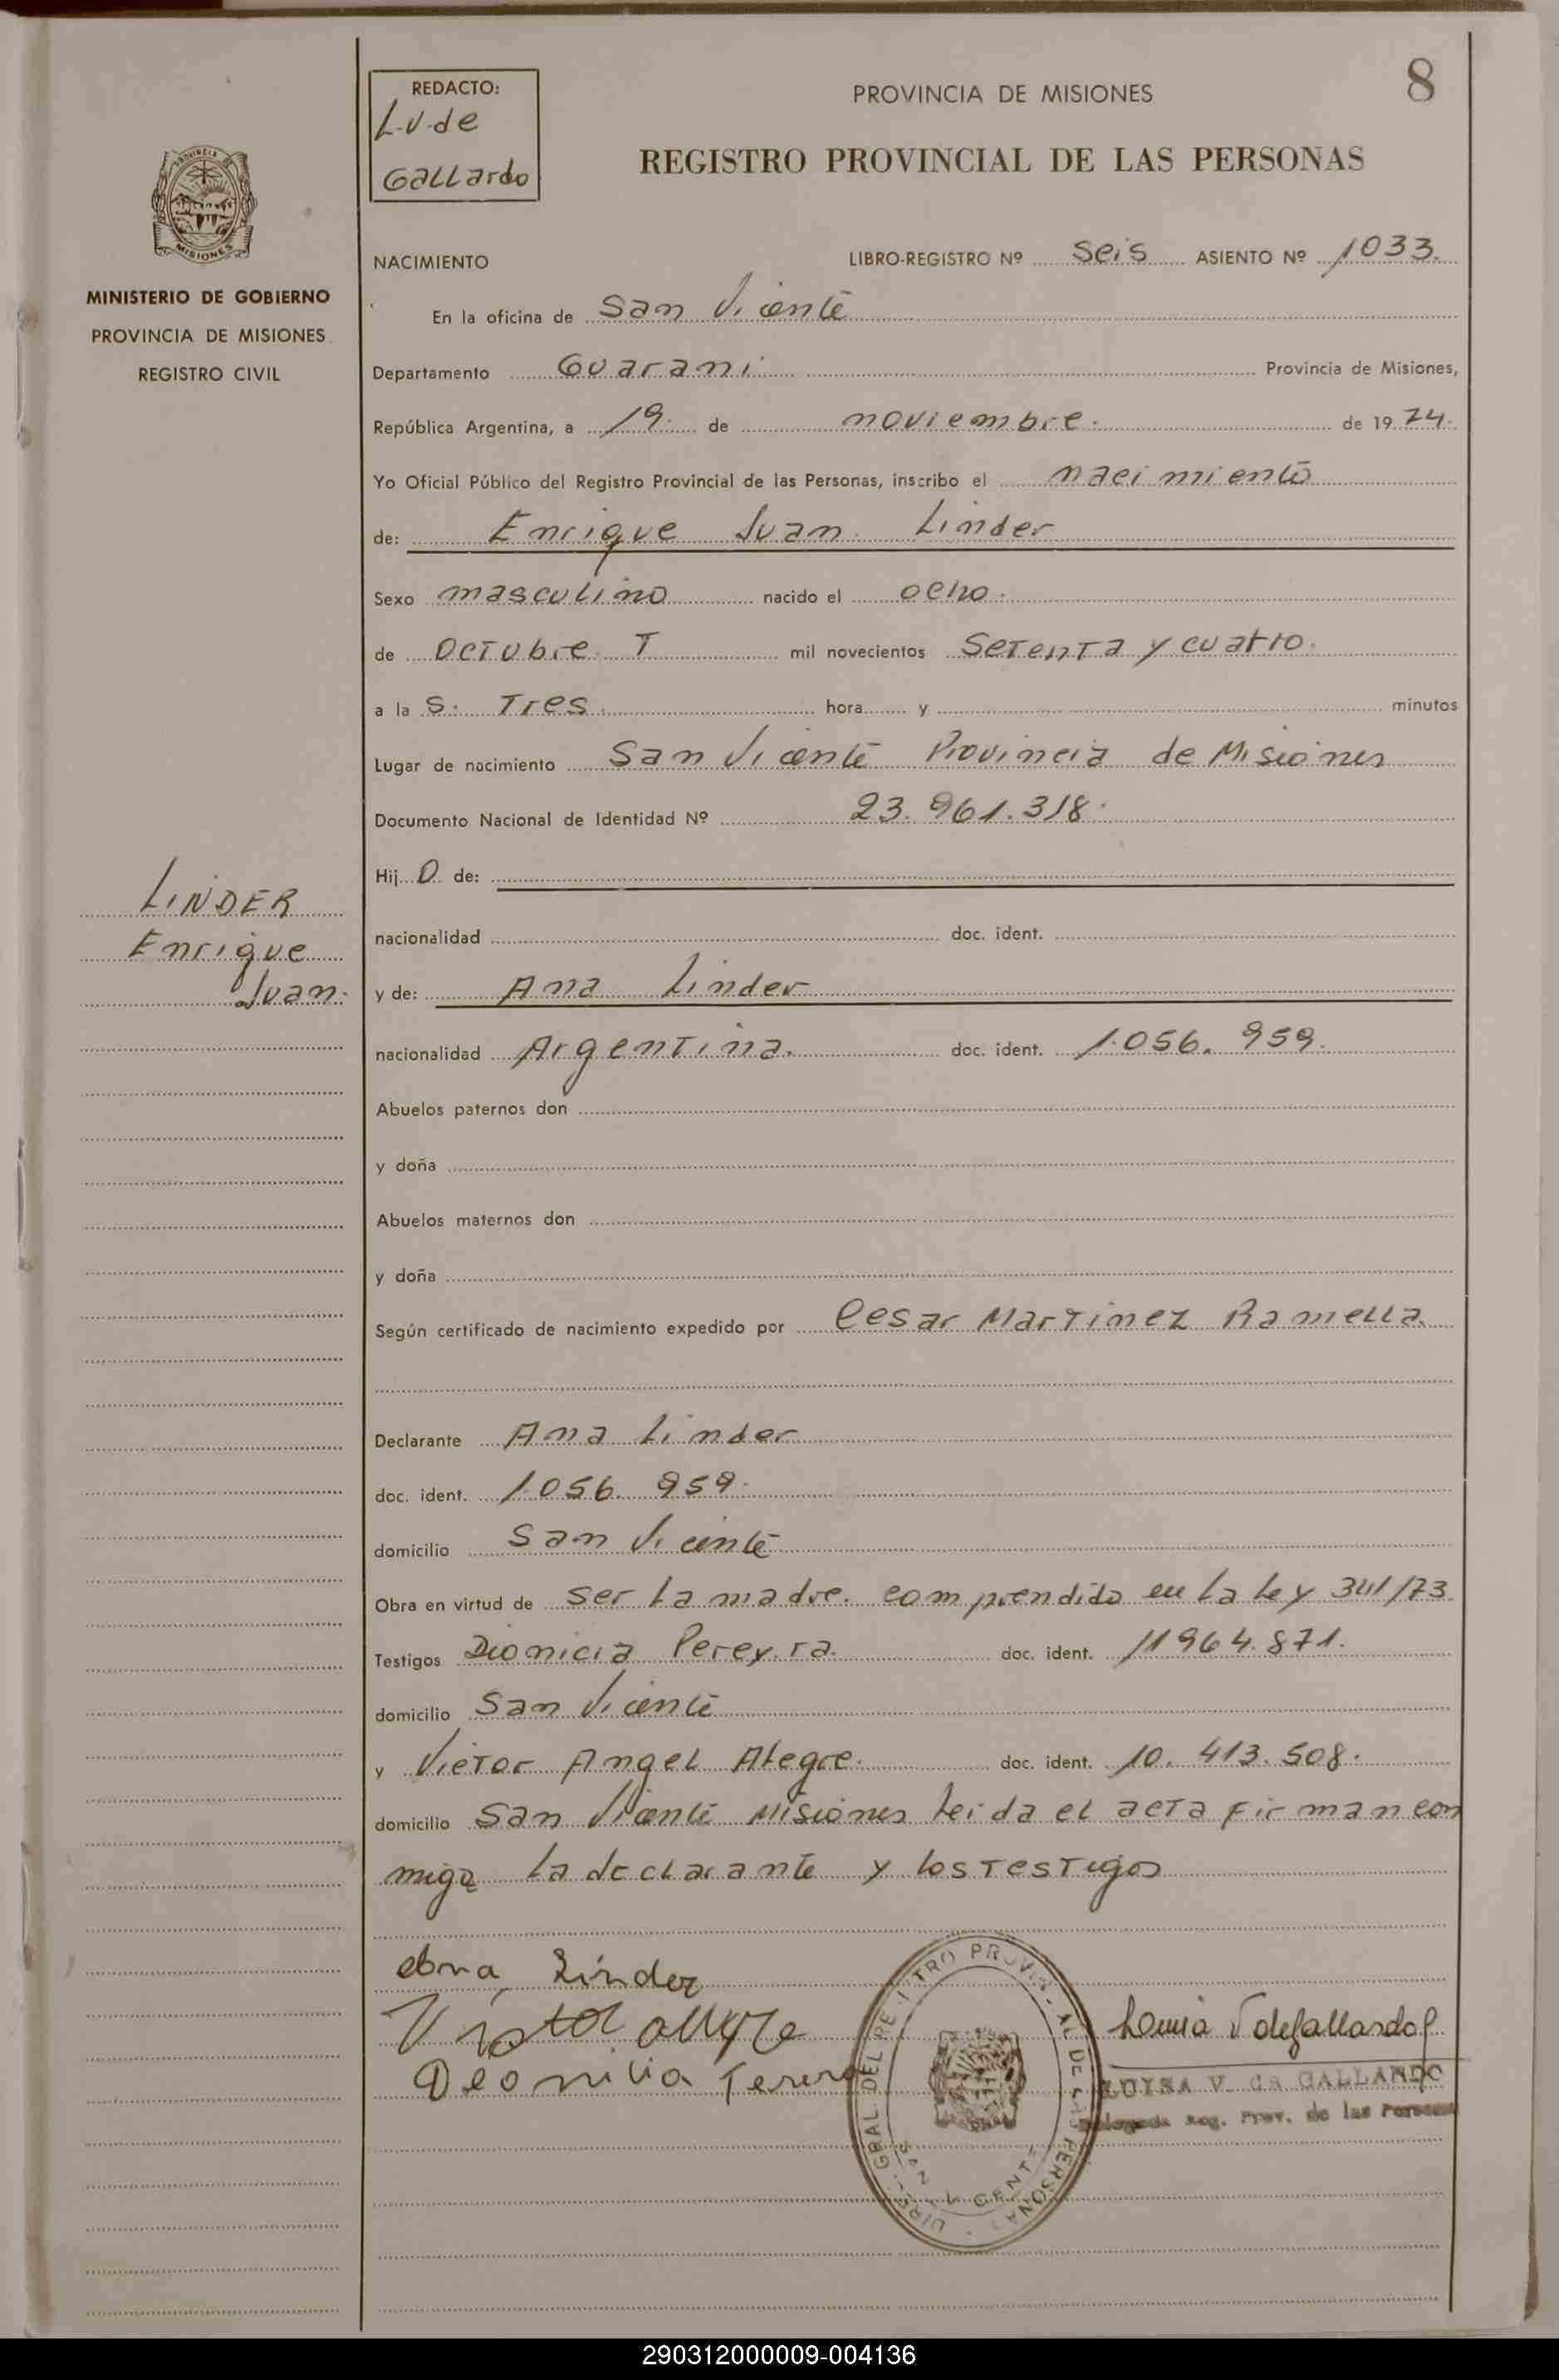 8
REDACTO:
L.V. de
Gallardo
PROVINCIA DE MISIONES
REGISTRO PROVINCIAL DE LAS PERSONAS
MISIONES
MINISTERIO DE GOBIERNO
PROVINCIA DE MISIONES
REGISTRO CIVIL
NACIMIENTO LIBRO-REGISTRO Nº Seis ASIENTO Nº 1033.
En la oficina de San Vicente
Departamento Guarani Provincia de Misiones,
República Argentina, a 19. de noviembre. de 19 74.
Yo Oficial Público del Registro Provincial de las Personas, inscribo el nacimiento
de: Enrique Juan Linder
Sexo masculino nacido el ocho.
de Octubre mil novecientos Setenta y cuatro.
a la s. Tres. hora y minutos
Lugar de nacimiento San Vicente Provincia de Misiones
Documento Nacional de Identidad Nº 23.961.318.
Hij o de:
LINDER
Enrique
Juan.
nacionalidad doc. ident.
y de: Ana Linder
nacionalidad Argentina. doc. ident. 1.056.959.
Abuelos paternos don
y doña
Abuelos maternos don
y doña
Según certificado de nacimiento expedido por Cesar Martinez Ramella.
Declarante Ana Linder
doc. ident. 1.056.959.
domicilio San Vicente
Obra en virtud de ser la madre. comprendida en la ley 341/73.
Testigos Dionicia Pereyra. doc. ident. 11964.871.
domicilio San Vicente
y Victor Angel Alegre. doc. ident. 10.413.508.
domicilio San Vicente Misiones leida el acta firman con
migo la declarante y los testigos
Ana Linder
Victor
LUISA V. de GALLARDO
Delegada Reg. Prov. de las Personas
DIREC. GRAL. DEL REGISTRO PROVINCIAL DE LAS PERSONAS
SAN VICENTE
290312000009-004136